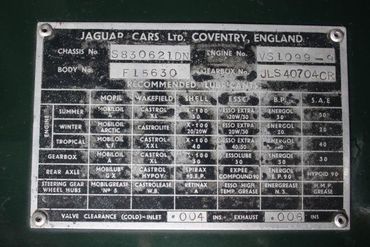 JAGUAR CARS LTD. COVENTRY, ENGLAND.
CHASSIS No. S830621DN ENGINE No. VS1099-9
BODY No. F15630 GEARBOX No. JLS40704CR
RECOMMENDED LUBRICANTS
MOBIL WAKEFIELD SHELL ESSO B.P. S.A.E
ENGINE
SUMMER MOBILOIL CASTROL X-100 ESSO EXTRA 20W/30 ENERGOL 30
WINTER MOBILOIL ARCTIC CASTROLITE X-100 20/20W ESSO EXTRA 20W/30 ENERGOL 20 20
TROPICAL MOBILOIL CASTROL XXL X-100 40 ESSO EXTRA 40/50 ENERGOL 40 40
GEARBOX MOBILOIL CASTROL XL X-100 30 ESSOLUBE 30 ENERGOL 30 30
REAR AXLE MOBILUBE GX CASTROL HYPOY SPIRAX 90.E.P. EXPEE COMPOUND 90 ENERGOL E.P.90 HYPOID 90
STEERING GEAR WHEEL HUBS MOBILGREASE No 5 CASTROLEASE W.B. RETINAX A ESSO HIGH TEMP. GREASE ENERGREASE N.3. H.M.P. GREASE
VALVE CLEARANCE (COLD)-INLET .004 INS. EXHAUST .006 INS